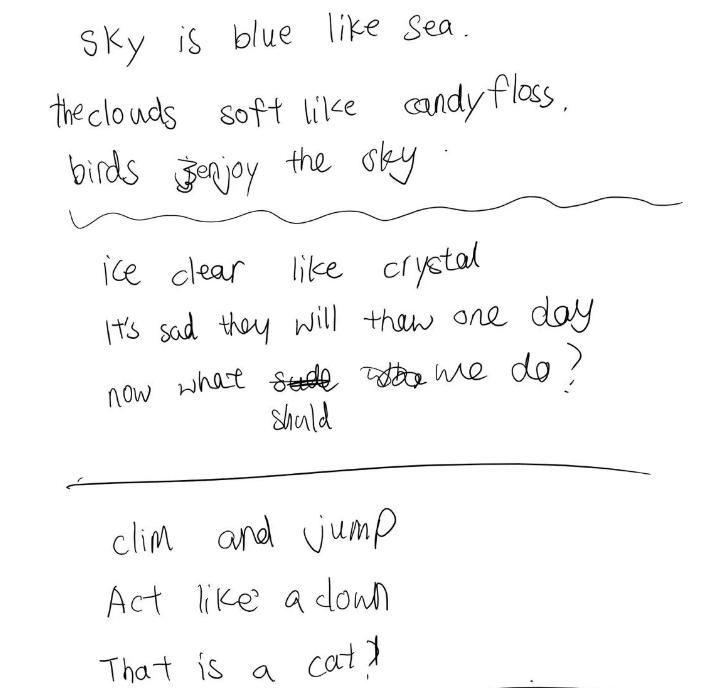 sky is blue like sea.
the clouds soft like candyfloss.
birds enjoy the sky.
ice clear like crystal
It's sad they will thaw one day
now what should we do?
clim and jump
Act like a clown
That is a cat!